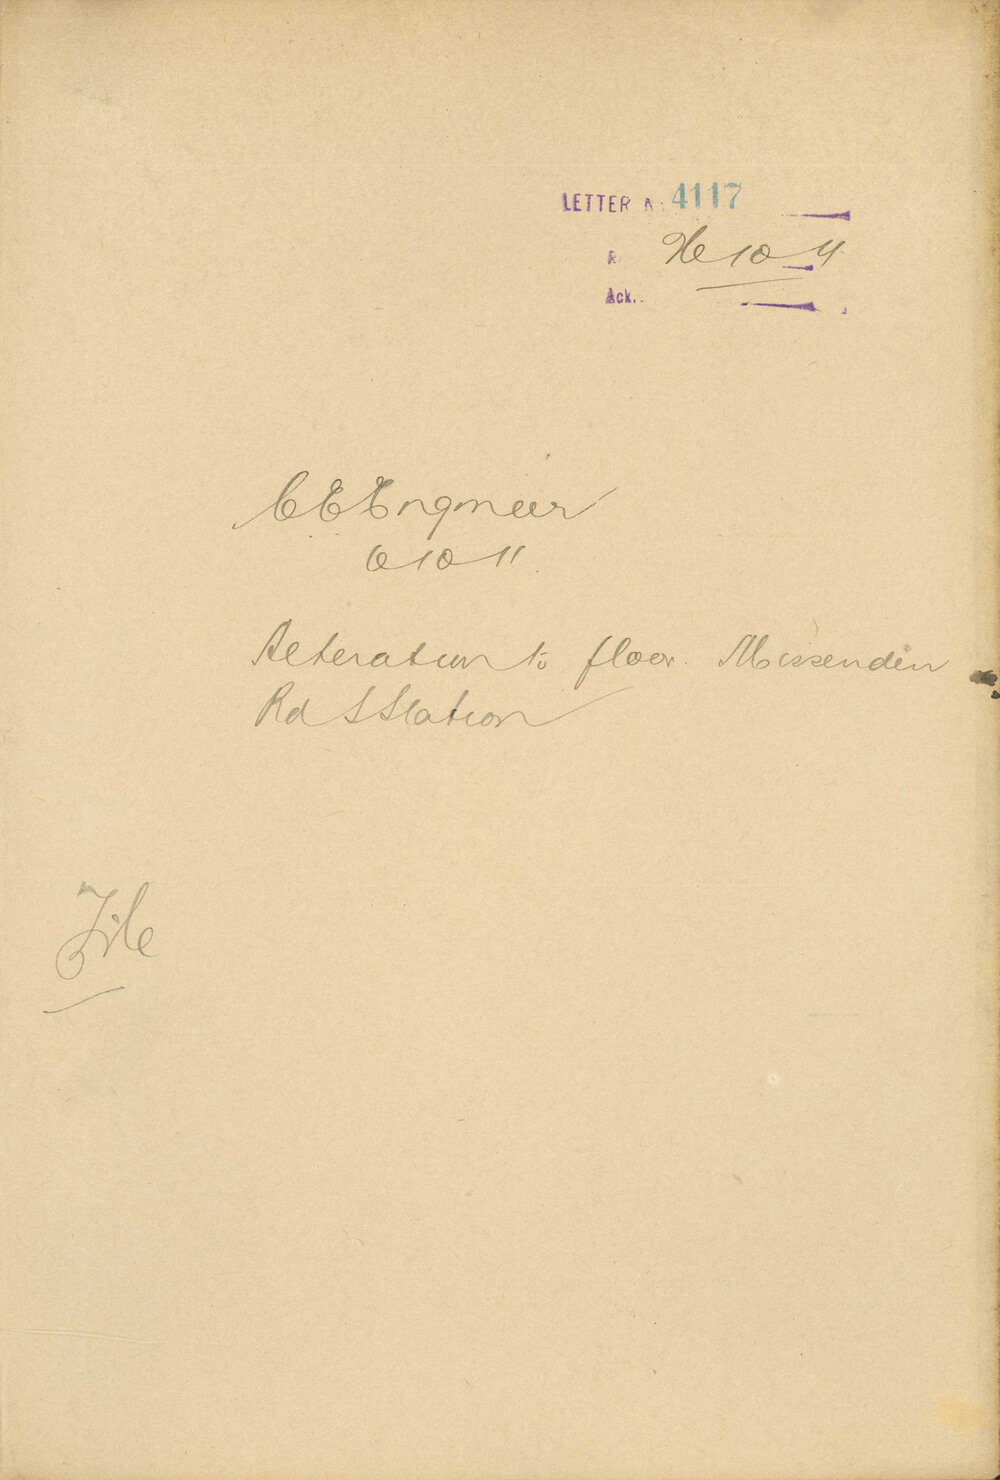 LETTER No 4117
R 10 11
Ack.
C E Engineer
6 10 11
Alteration to floor Missenden
Rd S Station
File